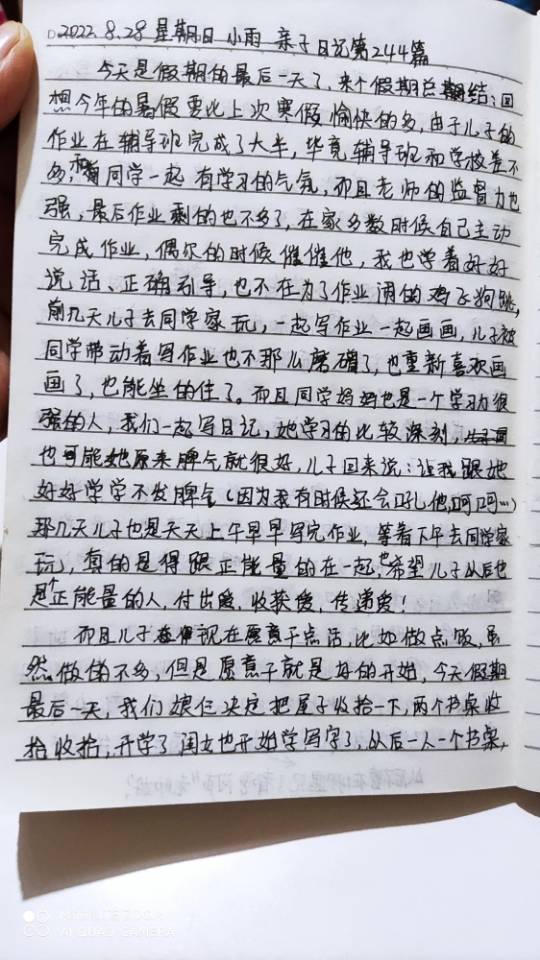 2022.8.28 星期日 小雨 亲子日记第244篇
今天是假期的最后一天了，来个假期总结：回
想今年的暑假要比上次寒假愉快的多，由于儿子的
作业在辅导班完成了大半，毕竟辅导班和学校差不
多，和同学一起有学习的气氛，而且老师的监督力也
强，最后作业剩的也不多了，在家多数时候自己主动
完成作业，偶尔的时候催催他，我也学着好好
说话、正确引导，也不在为了作业闹的鸡飞狗跳，
前几天儿子去同学家玩，一起写作业一起画画，儿子被
同学带动着写作业也不那么磨蹭了，也重新喜欢画
画了，也能坐的住了。而且同学妈妈也是一个学习力很
强的人，我们一起写日记，她学习的比较深刻，
也可能她原来脾气就很好，儿子回来说：让我跟她
好好学学不发脾气（因为我有时候还会吼他，呵呵…）
那几天儿子也是天天上午早早写完作业，等着下午去同学家
玩，真的是得跟正能量的在一起，也希望儿子从后也
是个正能量的人，付出爱，收获爱，传递爱！
而且儿子现在愿意干点活，比如做点饭，虽
然做的不多，但是愿意干就是好的开始，今天假期
最后一天，我们娘仨决定把屋子收拾一下，两个书桌收
拾收拾，开学了闺女也开始学写字了，从后一人一个书桌，
AI QUAD CAMERA